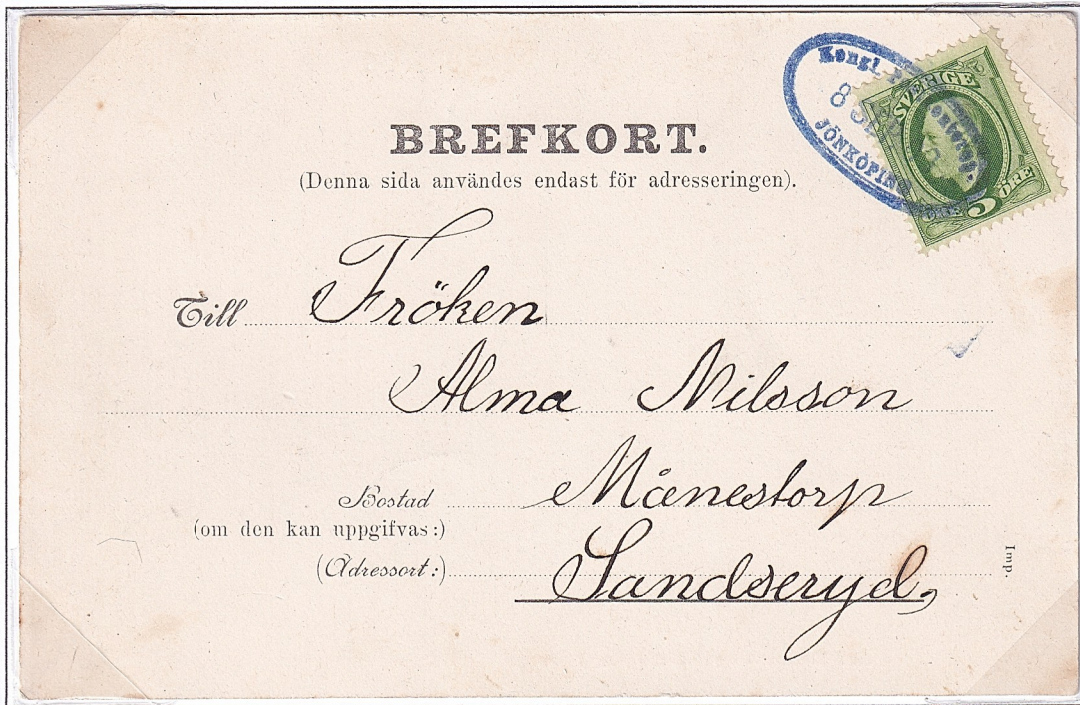 Kongl.
8
JÖNKÖPING
SVERIGE
ÖRE 5 ÖRE
BREFKORT.
(Denna sida användes endast för adresseringen).
Till Fröken
Alma Nilsson
Bostad Månestorp
(om den kan uppgifvas:)
(Adressort:) Sandseryd,
Imp.